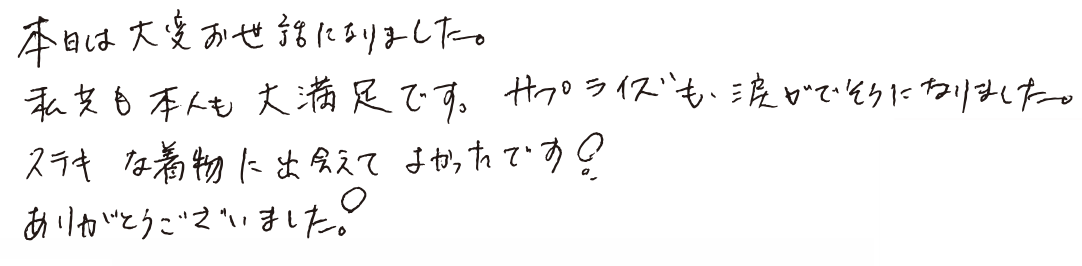 本日は大変お世話になりました。
私共も本人も大満足です。サプライズも、涙がでそうになりました。
ステキな着物に出会えてよかったです!
ありがとうございました!